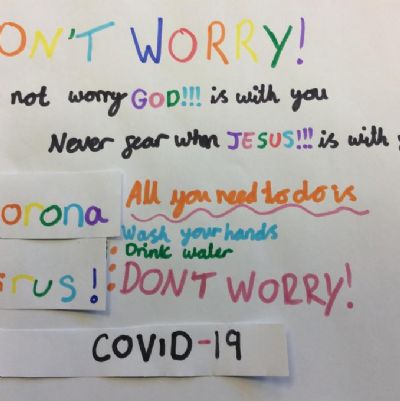 ON'T WORRY!
not worry GOD!!! is with you
Never fear when JESUS!!! is with y
orona
All you need to do is
Wash your hands
Drink water
irus!
DON'T WORRY!
COVID-19